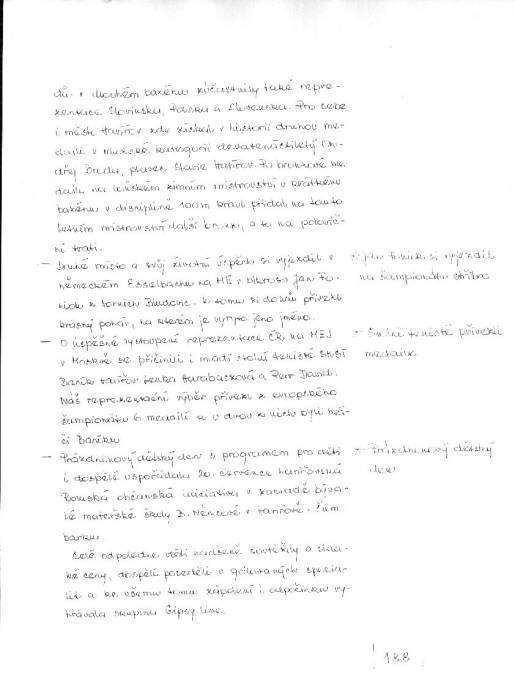 dů v dlouhém bazénu zúčastnily také repre-
zentace Slovinska, Polska a Slovenska. Pro sebe
i město Havířov zde získal v historii druhou me-
daili v mužské kategorii devatenáctiletý On-
dřej Broda, plavec Slavie Havířov. Po bronzové me-
daili na loňském zimním mistrovství v krátkém
bazénu v disciplíně 100m kraul přidal na tomto
letním mistrovství další bronz, a to na polovič-
ní trati.
– Druhé místo a svůj životní úspěch si vyjezdil v
německém Esselbachu na ME v bikrosu Jan
z Horních Bludovic. K tomu si domů přivezl
krásný pohár, na kterém je vyryto jeho jméno.
– O úspěšné vystoupení reprezentace ČR na MEJ
v Moskvě se přičinili i mladí stolní tenisté SKST
Baník Havířov Lenka Harabaszová a Petr David.
Náš reprezentační výběr přivezl z evropského
šampionátu 6 medailí a u dvou z nich byli hrá-
či Baníku
– Prázdninový dětský den s programem pro děti
i dospělé uspořádala 20. července havířovská
Romská občanská iniciativa v zahradě býva-
lé mateřské školy B. Němcové v Havířově - Šum
barku.
Celé odpoledne děti nadšeně soutěžily o slad-
ké ceny, dospělí poseděli u grilovaných specia-
lit a ke všemu tomu zápolení i odpočinku vy-
hrávala skupina Gipsy live.
– Jan si vyjezdil
na šampionátu stříbro
– Stolní tenisté přivezli
medaile
– Prázdninový dětský
den
188